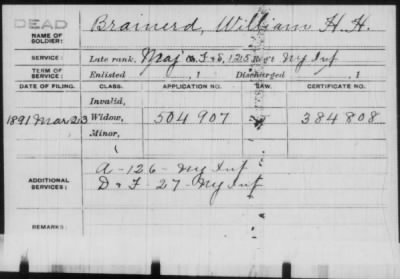 DEAD
NAME OF SOLDIER: Brainerd, William H. H.
SERVICE: Late rank, Maj F & S, 125 Reg't Ny Inf
TERM OF SERVICE: Enlisted , 1 Discharged , 1
DATE OF FILING. CLASS. APPLICATION NO. LAW. CERTIFICATE NO.
Invalid,
1891 Mar 23 Widow, 504907 384808
Minor,
ADDITIONAL SERVICES: A - 126 - Ny Inf
D & F - 27 - Ny Inf
REMARKS: